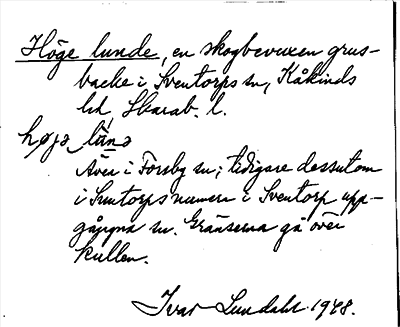 Höge lunde, en skogbevuxen grus-
backe i Sventorps sn, Kåkinds
hd, Skarab. l.
høgə lunə
Även i Forsby sn; tidigare dessutom
i Suntorps numera i Sventorp upp-
gångna sn. Gränserna gå över
kullen.
Ivar Lundahl 1948.